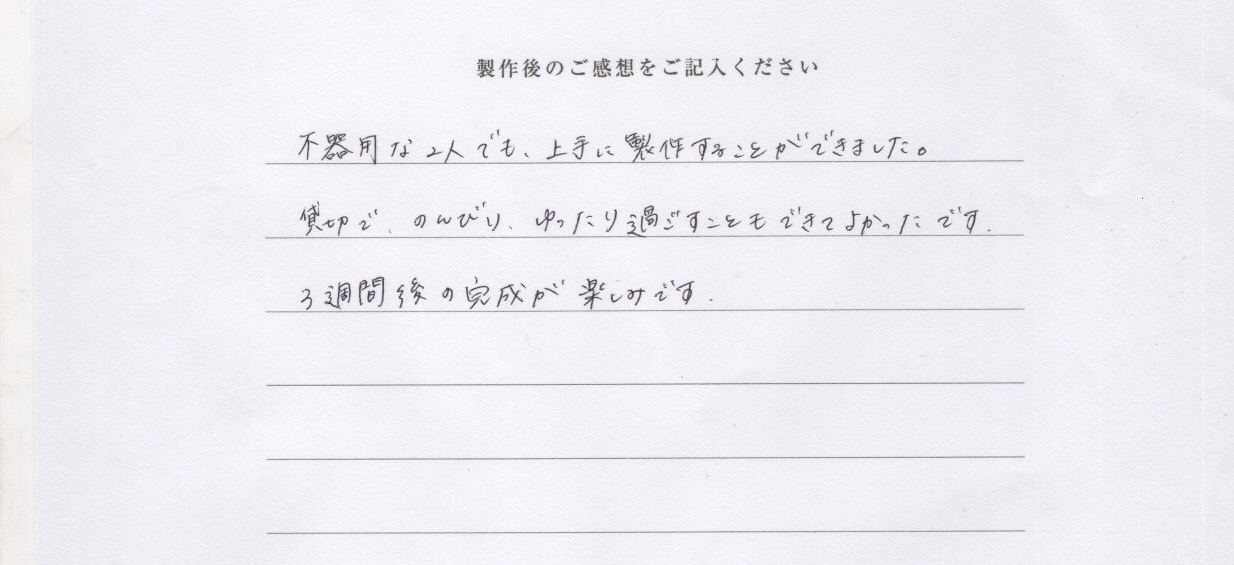 製作後のご感想をご記入ください
不器用な2人でも、上手に製作することができました。
貸切で、のんびり、ゆったり過ごすこともできてよかったです.
3週間後の完成が楽しみです.